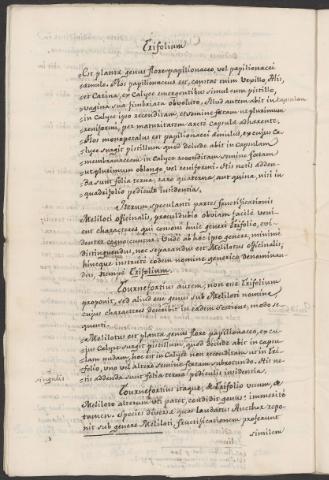 Trifolium
Est planta genus flore papilionaceo, vel papilionacei
æmulo. Flos papilionaceus est, constat enim Vexillo, Alis,
et Carina, ex Calyce emergentibus simul cum pistillo,
vagina sua fimbriata obvoluto. Illud autem abit in capsulam
in Calyce ipso reconditam, et semine fœtam ut plurimum
reniformi, per maturitatem arcte capsulæ adhærente.
Flos monopetalus est papilionacei æmulus, ex cujus Ca-
lyce surgit pistillum quod deinde abit in capsulam
membranaceam in Calyce reconditam semine fœtam
ut plurimum oblongo, vel reniformi. His notis adden-
da sunt folia terna, raro quaterna, aut quina, uni in
quadam pediculo insidentia.
Iterum speculanti partes fructificationis
Meliloti officinalis, præcul dubio obviam facile veni-
unt characteres qui conveni huic generi Trifolio, vi-
dentes cognoscuntur. Unde ab hoc ipso genere, minime
distinguendum, nec separandum est Melilotus officinalis,
hincque instituti eodem nomine generico denominan-
dus, nempe Trifolium.
Tournefortius autem, non quæ Trifolium
proponit, sed aliud quæ genus sub Meliloti nomine,
cujus characteres describit in eadem sectione, modo se-
quenti.
Melilotus est planta genus flore papilionaceo, ex cu-
jus Calyce surgit pistillum, quod deinde abit in capsu-
lam nudam, hoc est in Calyce non reconditam uti in Tri-
folio, uno vel altero semine fœtam subrotundo. His no-
tis addenda sunt folia terna pediculis insidentia.
singulis
Tournefortius itaque, de Trifolio unum, de
Meliloto alterum uti patet, condidit genus: immerito
tamen. Species diversæ quas laudatus Auctor repo-
nit sub genere Meliloti, fructificationem proferunt
similem